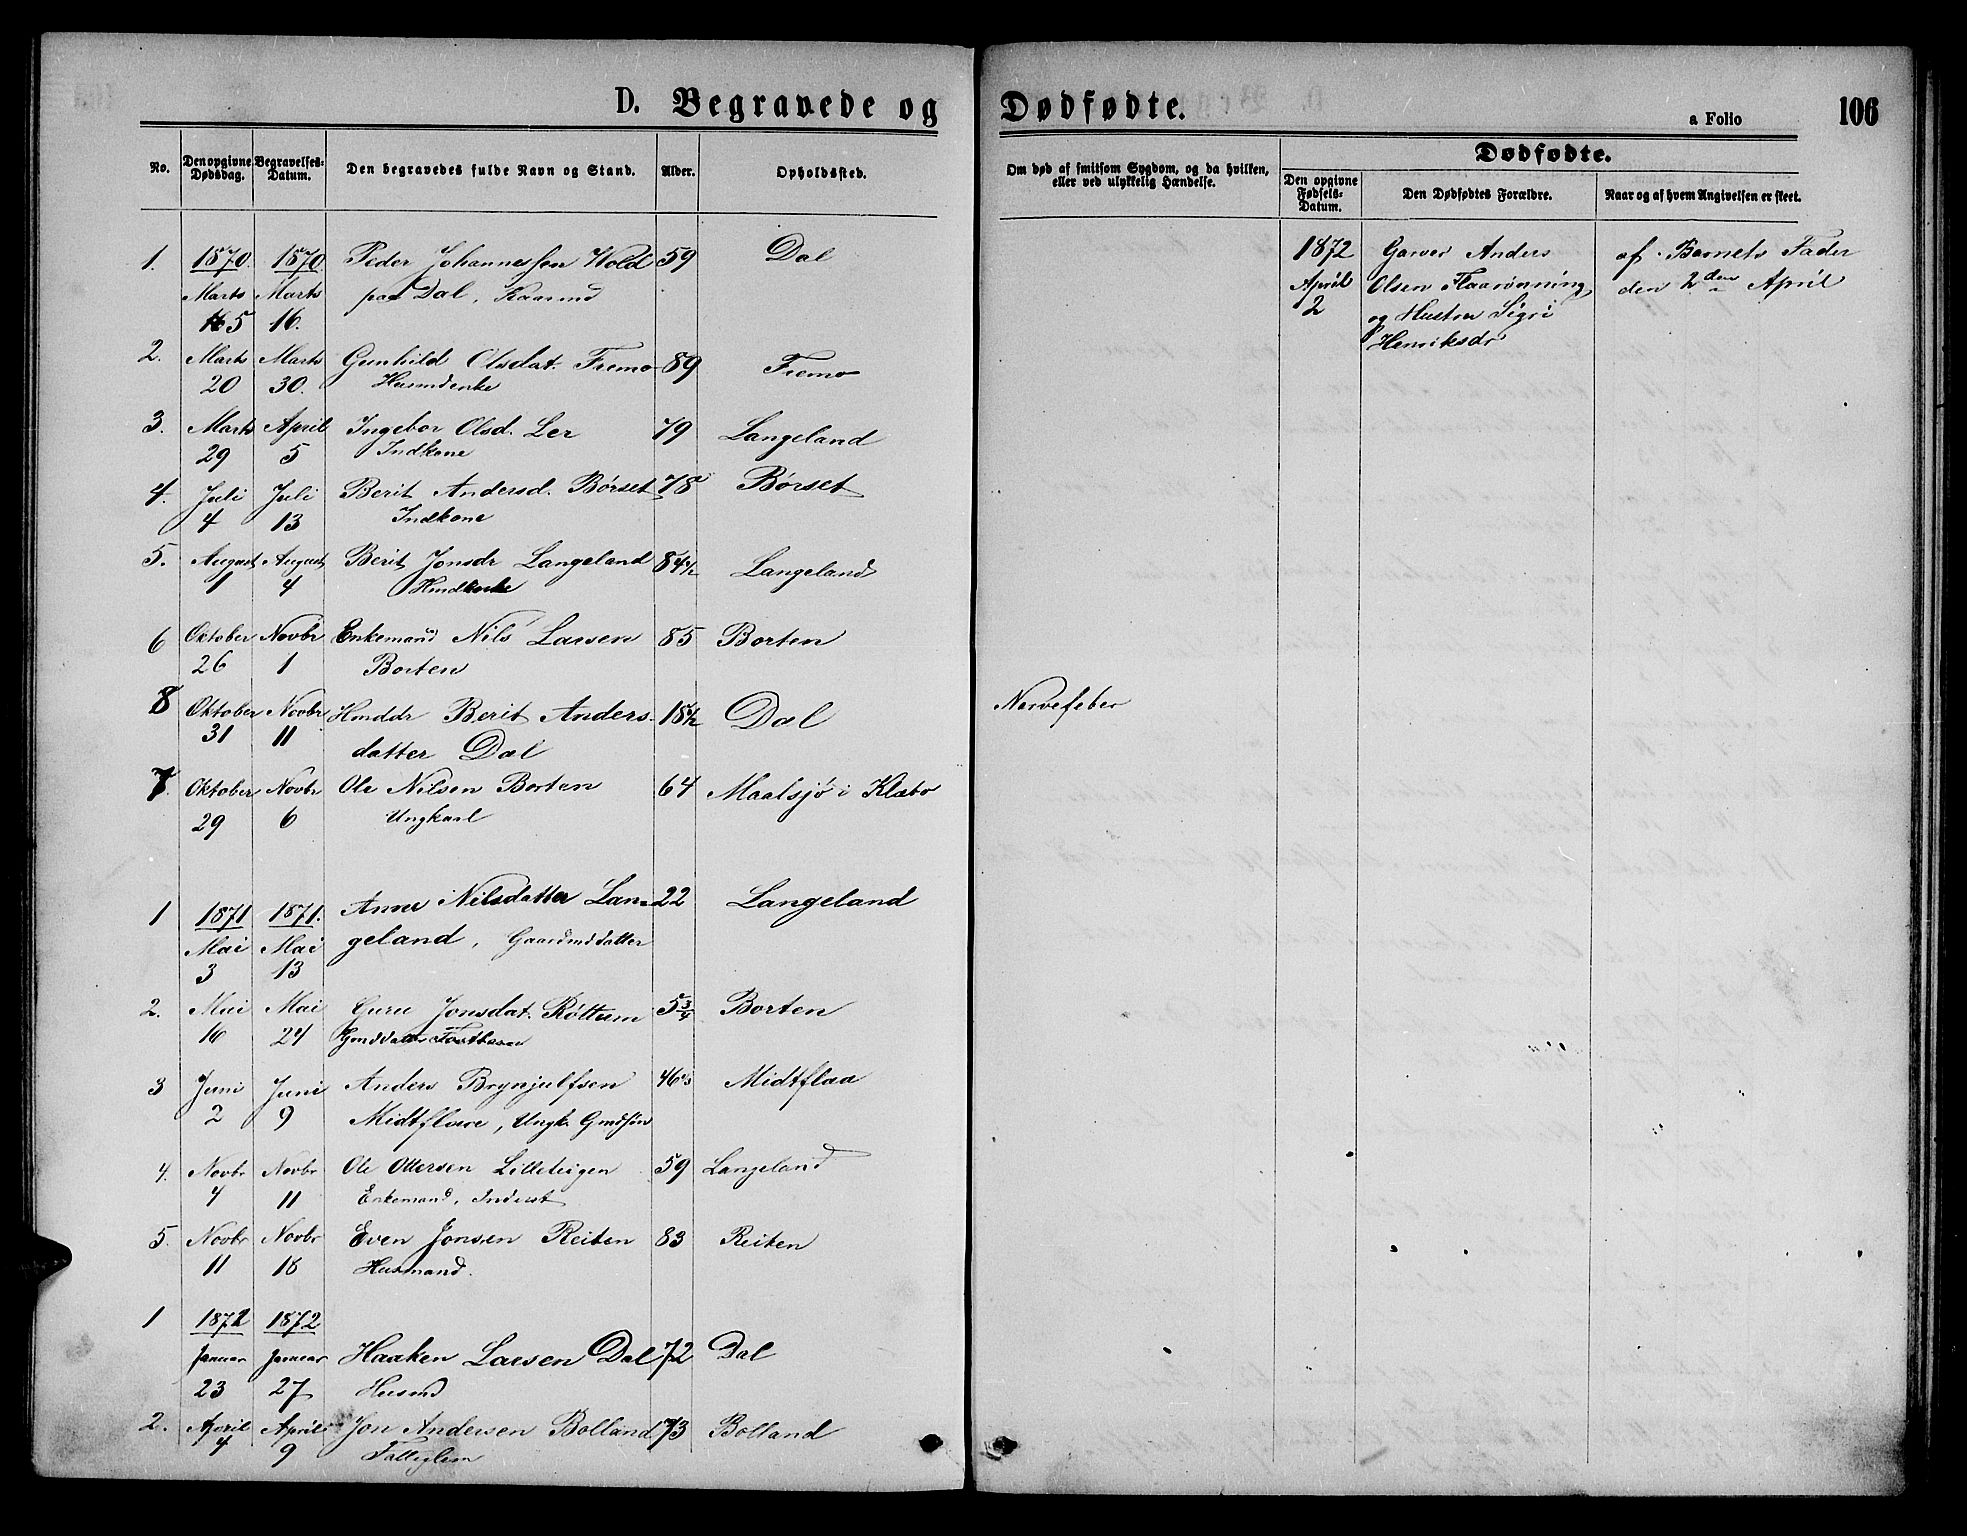 D. Begravede og
Dødfødte.
a Folio
106
No.
Den opgivne Dødsdag.
Begravelses-Datum.
Den begravedes fulde Navn og Stand.
Alder.
Opholdssted.
Om død af smitsom Sygdom, og da hvilken,
eller ved ulykkelig Hændelse.
Dødfødte.
Den opgivne Fødsels-Datum.
Den Dødfødtes Forældre.
Naar og af hvem Angivelsen er skeet.
1. 1870. 1870. Peder Johannessen Wold 59 Dal
Marts Marts paa Dal,
5 16.
2. Marts Marts Gunhild Olsdat. Fremo 89 Fremo
20 30.
3. Marts April Ingebor Olsd. Ler 79 Langeland
29 5 Indkone
4. Juli Juli Berit Andersd. Børset 78 Børset
4 13 Indkone
5. August August Berit Jonsdr Langeland 84½ Langeland
1 4
6 Oktober Novbr Enkemand Nils Larsen 85 Borten
26 1 Borten
8 Oktober Novbr Hmddr Berit Anders- 18½ Dal Nervefeber
31 11 datter Dal
7 Oktober Novbr Ole Nilsen Borten 64 Maalsjø i Klæbo
29 6 Ungkarl
1 1871 1871. Anne Nilsdatter Lan- 22 Langeland
Mai Mai geland, Gaardmddatter
3 13
2. Mai Mai Guru Jonsdat. Røttum 5¾ Borten
16 24 Gmddatter
3 Juni Juni Anders Brynjulfsen 46 Midtflaa
2 9 Midtflaae, Ungk. Gmdsøn
4. Novbr Novbr Ole Ottersen Lilleteigen 59 Langeland
4 11 Enkemand, Inderst
5. Novbr Novbr Even Jonsen Reiten 83 Reiten
11 18 Husmand.
1 1872 1872
Januar Januar Haaken Larsen Dal 72 Dal
23 27 Husmd
2. April April Jon Andersen Bolland 73 Bolland
4 9 Fattiglem
1872 Garver Anders af Barnets Fader
April Olsen Flaarønning den 2den April
2 og Hustru Sigri
Henriksdr